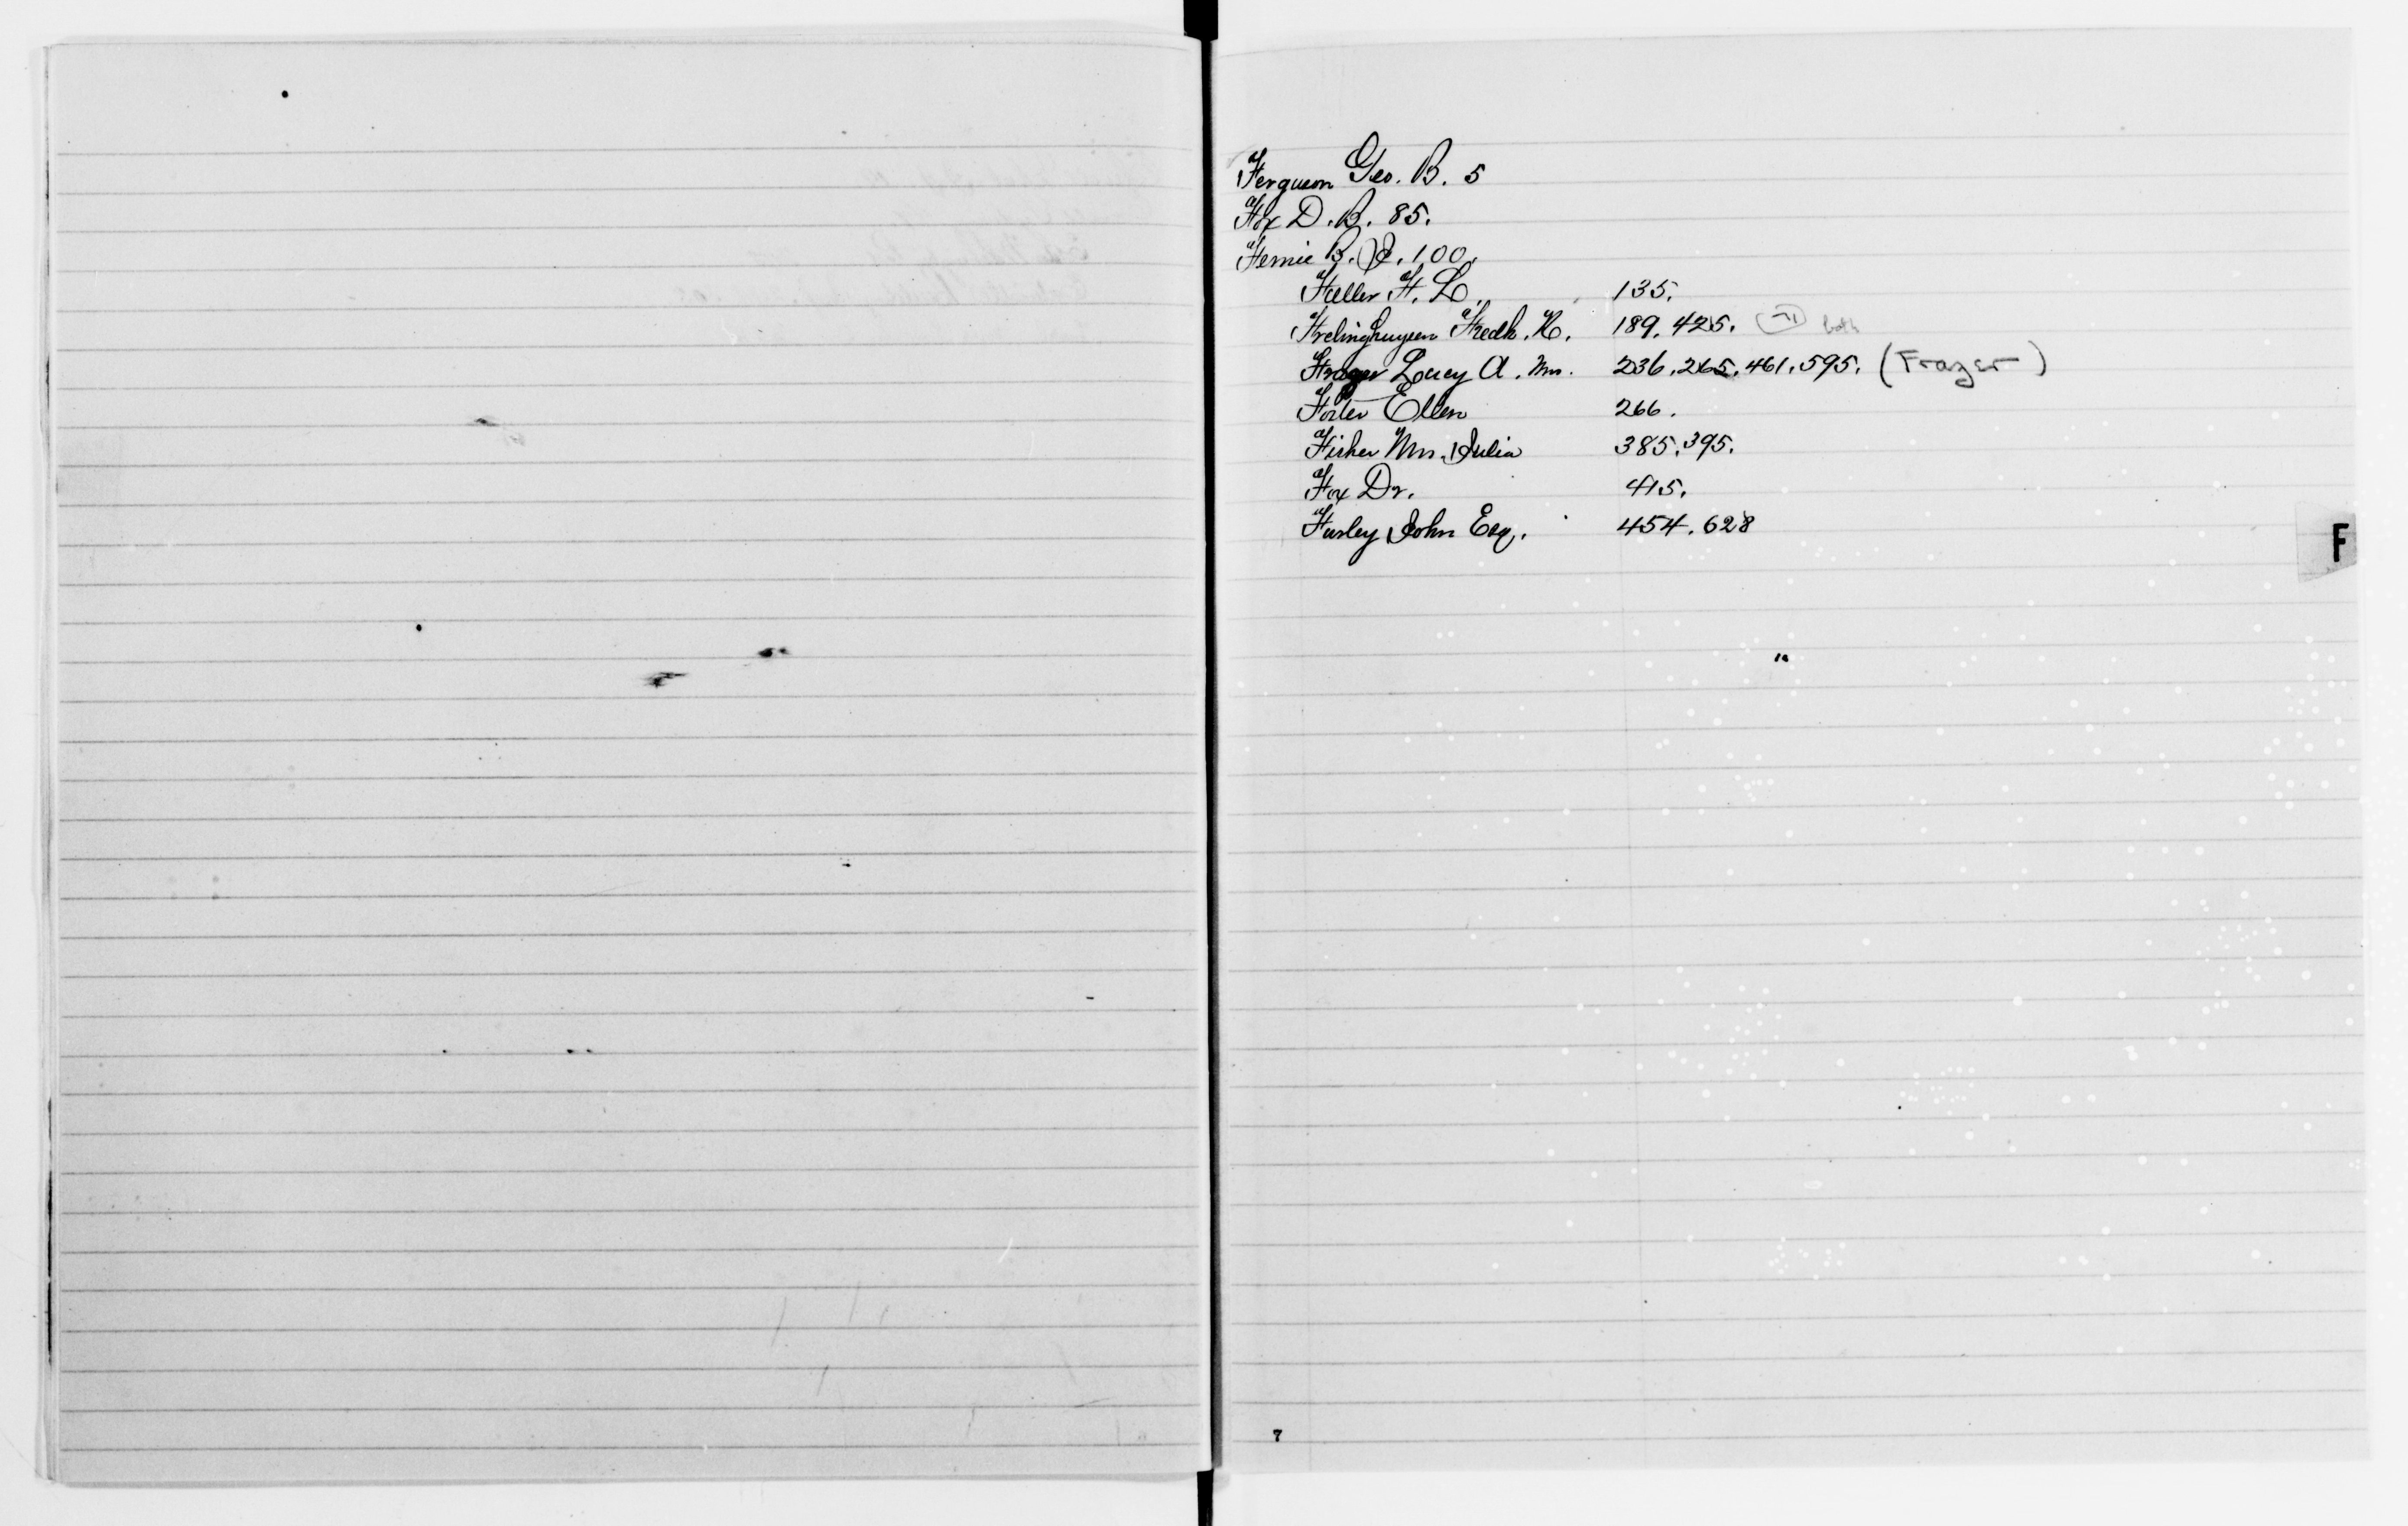 Ferguson Geo. B. 5
Fox D. B. 85.
Fernie B. J. 100.
Fuller F. L. 135.
Frelinghuysen Fredk. R. 189. 425. both
Frazer Lucy A. Mrs. 236. 265. 461. 595. (Frazer)
Foster Ellen 266.
Fisher Mrs. Julia 385. 395.
Fox Dr. 415.
Farley John Esq. 454. 628
F
7